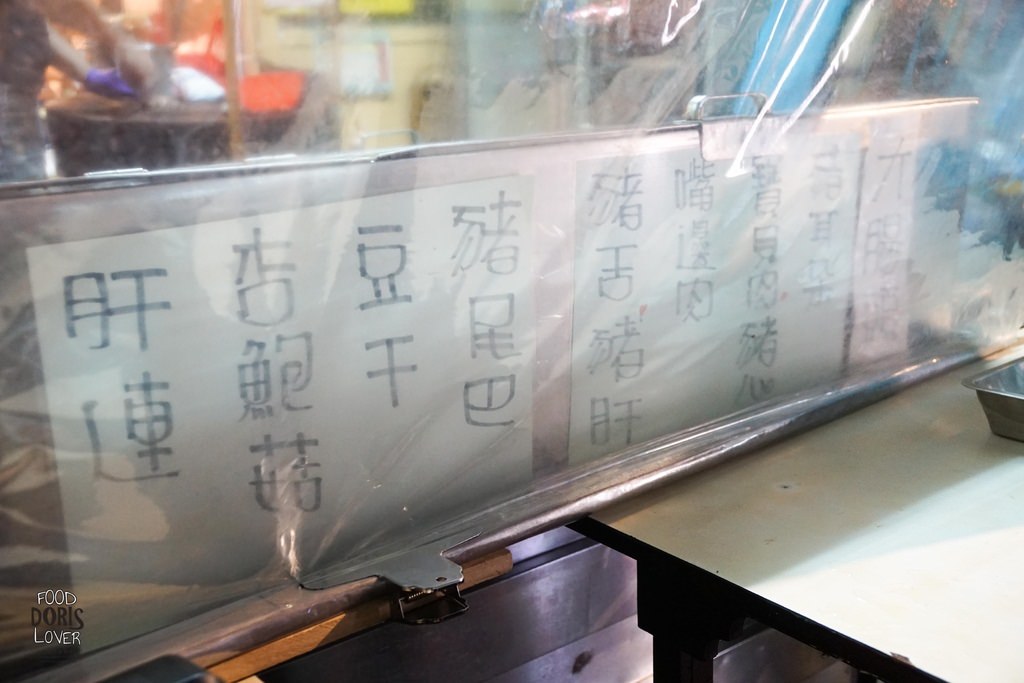 豬尾巴
豆干
杏鮑菇
肝連
豬舌豬肝
嘴邊肉
寶貝肉豬心
大腸
FOOD
DORIS
LOVER